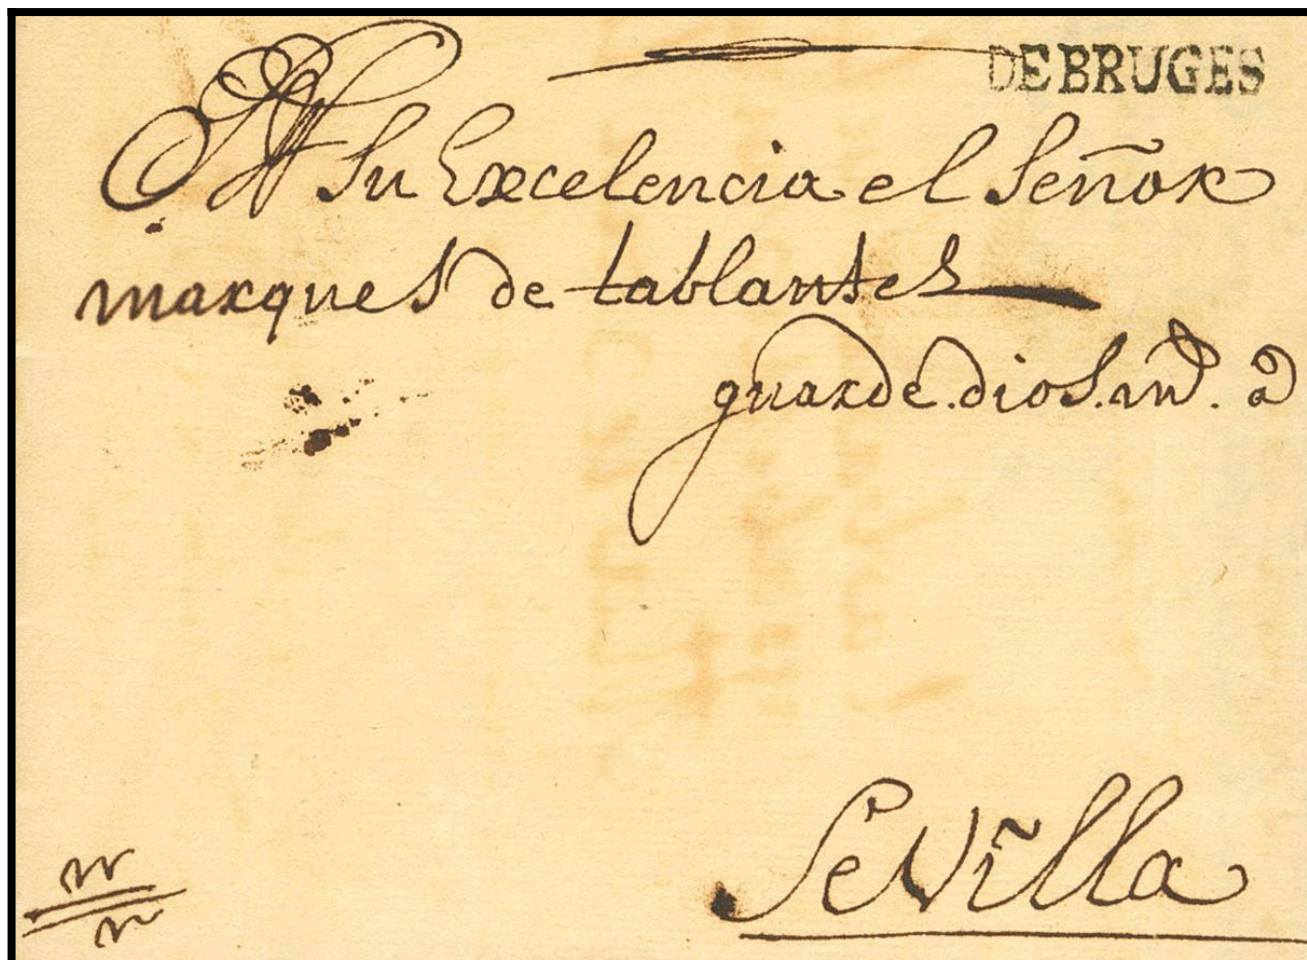 DE BRUGES
A Su Excelencia el Señor
marques de tablantes
guarde. dios. md. a
SeVilla